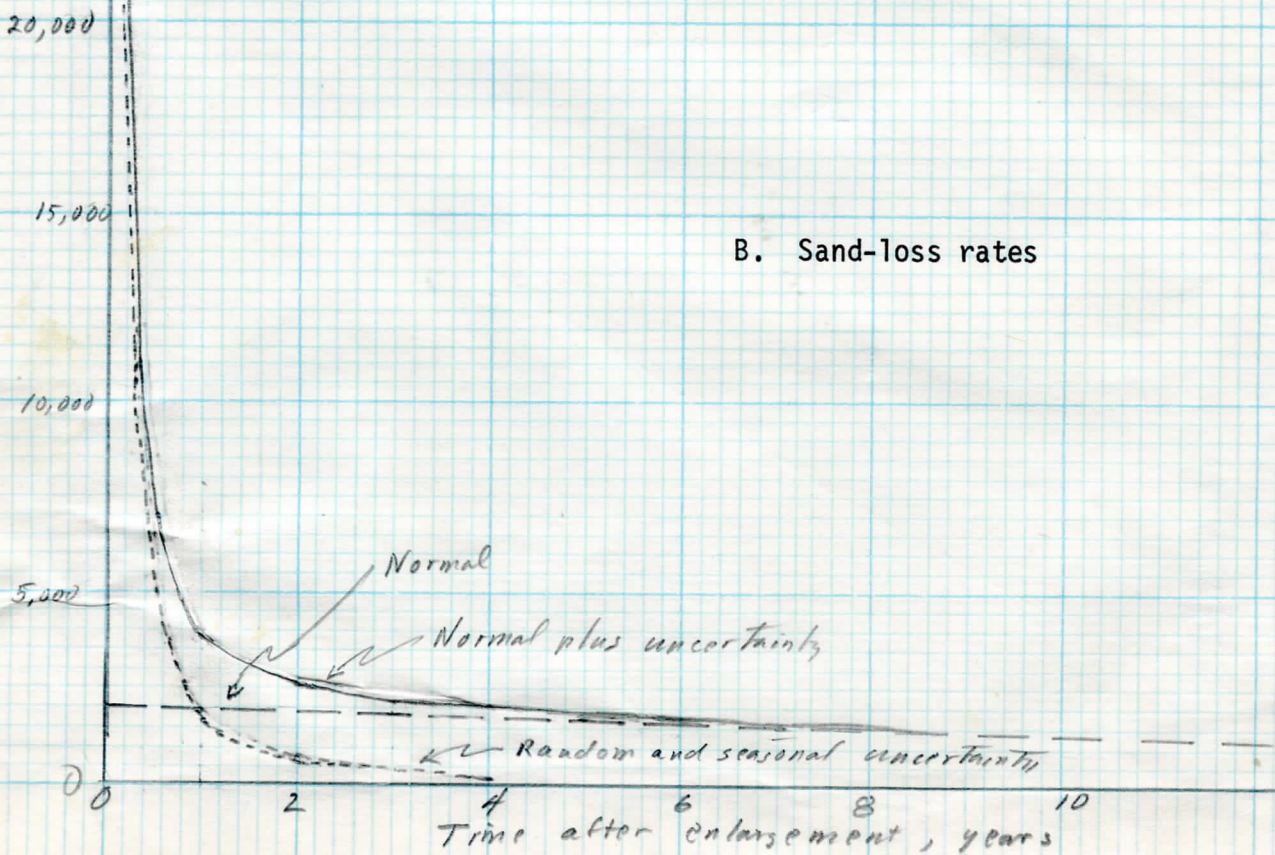 20,000
15,000
B. Sand-loss rates
10,000
Normal
5,000
Normal plus uncertainty
Random and seasonal uncertainty
0
0 2 4 6 8 10
Time after enlargement, years